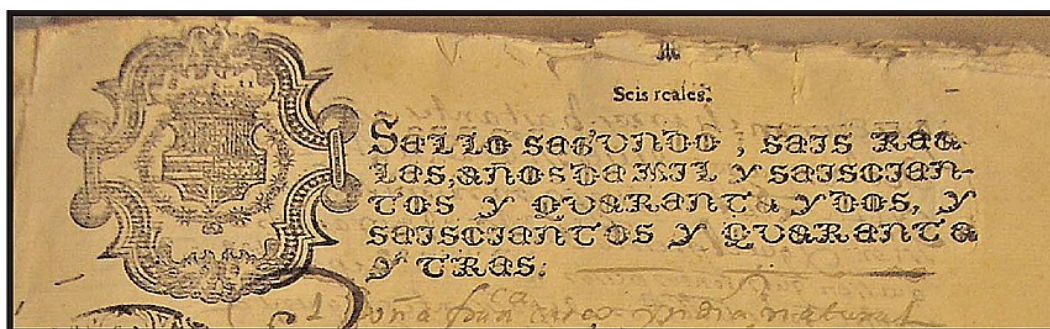 Seis reales.
SELLO SEGUNDO, SEIS REA-
LES, AÑOS DE MIL Y SEISCIEN-
TOS Y QUARENTA Y DOS, Y
SEISCIENTOS Y QUARENTA
Y TRES.
Yndia natural